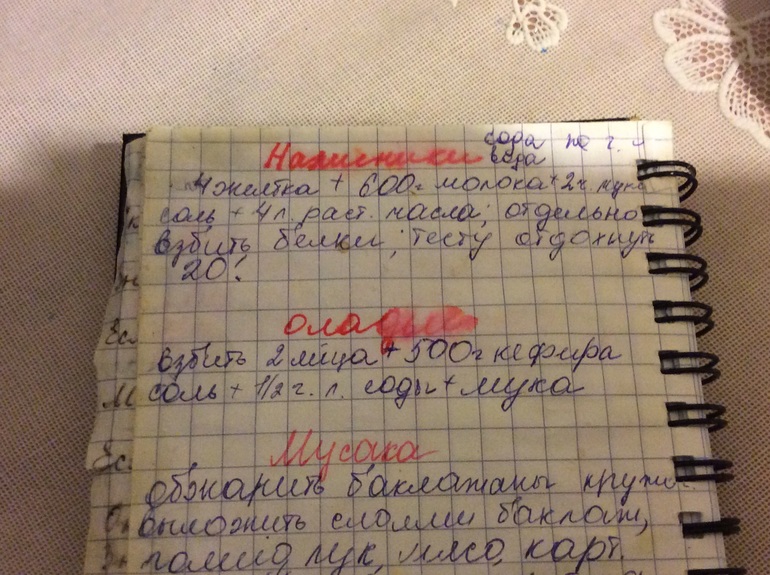 сода по г. л
Налисники вода
4 желтка + 600г молока + 2ч. муки
соль + 4 л. раст. масла; отдельно
взбить белки; тесту отдохнуть
20!
оладьи
взбить 2 яйца + 500г кефира
соль + 1/2 г. л. соды + мука
Мусака
обжарить баклажаны кружо
выложить слоями баклаж,
помид лук, мясо, карт.